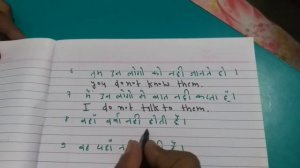 6 तुम उन लोगों को नहीं जानते हो ।
you do not know them.
7 मैं उन लोगों से बात नहीं करता हूँ ।
I do not talk to them.
8 वहाँ वर्षा नहीं होती है ।
9 वह यहाँ है ।